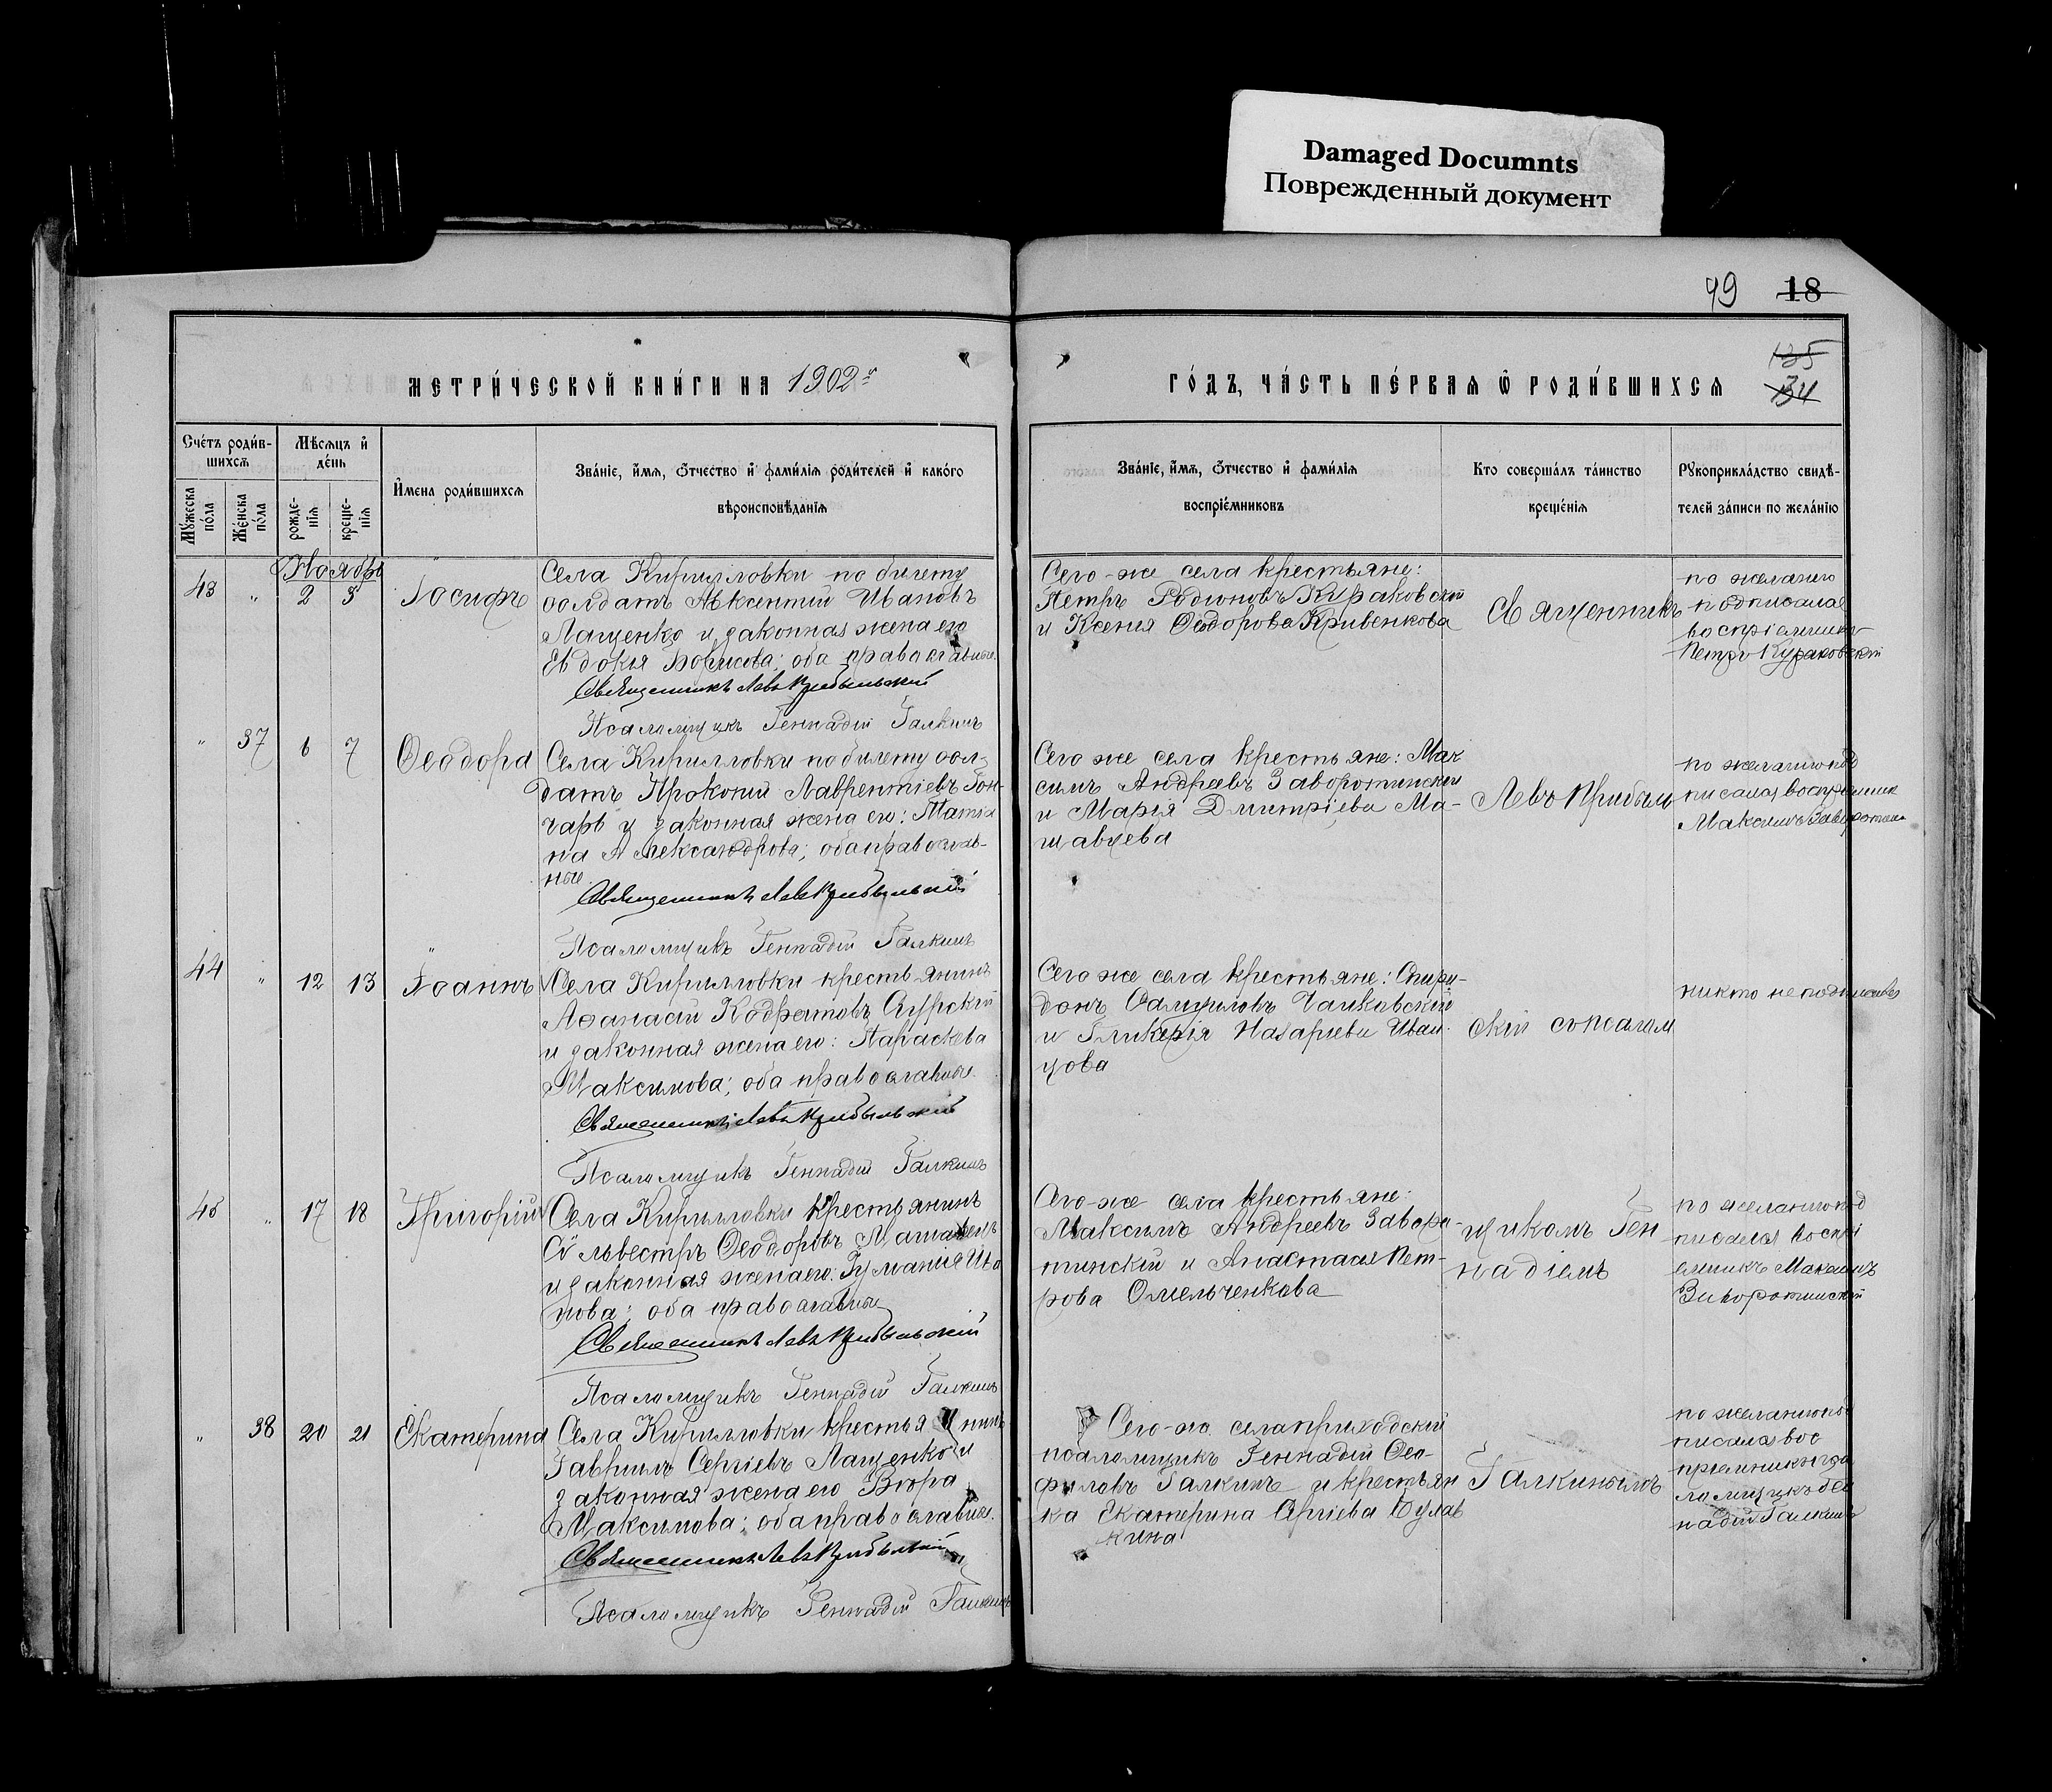 Damaged Documnts
Поврежденный документ
49 18
135
134
МЕТРИ́ЧЕСКОЙ КНИ́ГИ НА 1902 г
ГО́ДЪ, ЧА́СТЬ ПЕ́РВАѦ Ѽ РОДИ́ВШИХСѦ
Сче́тъ роди́в-
шихсѧ
Мѣ́сѧцъ и҆
де́нь
Му́жеска
по́ла
Же́нска
по́ла
рожде-
нїѧ
креще-
нїѧ
И҆мена роди́вшихсѧ
Зва́нїе, и҆́мѧ, ѻ҆́тчество и҆ фами́лїѧ роди́телей и҆ како́го
вѣроисповѣ́данїѧ
Зва́нїе, и҆́мѧ, ѻ҆́тчество и҆ фами́лїѧ
воспрїе́мниковъ
Кто соверша́лъ та́инство
креще́нїѧ
Рꙋкоприкла́дство свидѣ́-
телей за́писи по жела́нїю
Ноябрь
43 " 2 3 Іосифъ
Села Кирилловки по билету
солдатъ Авксентий Ивановъ
Лащенко и законная жена его
Евдокія Борисова; оба православные.
Священникъ Левъ Прибыльский
Псаломщикъ Геннадій Галкинъ
Сего-же села крестьяне:
Петръ Родионовъ Кураковский
и Ксения Ѳеодорова Кривенкова
Священникъ
по желанию
подписался
воспріемникъ
Петръ Кураковский
" 37 6 7 Ѳеодора
Села Кирилловки по билету сол-
датъ Прокопий Лаврентіевъ Гон-
чаръ и законная жена его: Татья
на Александрова; оба православ-
ные.
Священникъ Левъ Прибыльский
Псаломщикъ Геннадій Галкинъ
Сего же села крестьяне: Мак
симъ Андреевъ Заворотинский
и Марія Дмитріева Ма-
шавцева
Левъ Прибыль
по желанию под
писался воспріемник
Максимъ Заворотин
44 " 12 13 Іоаннъ
Села Кирилловки крестьянинъ
Аѳанасій Кодратовъ
и законная жена его: Параскева
Максимова; оба православные.
Священникъ Левъ Прибыльский
Псаломщикъ Геннадій Галкинъ
Сего же села крестьяне: Спири-
донъ Самуиловъ Чайковский
и Гликерія Назариева Иван-
цова
скій съ псалом
никто не подписывался
45 " 17 18 Григорій
Села Кирилловки крестьянинъ
Сильвестръ Ѳеодоровъ
и законная жена его: Іуліанія Ива
нова; оба православные
Священникъ Левъ Прибыльский
Псаломщикъ Геннадій Галкинъ
Сего-же села крестьяне:
Максимъ Андреевъ Заворо-
тинскій и Анастасія Пет-
рова Омельченкова
щикомъ Ген
надіемъ
по желанию под
писался воспрі
емникъ Максимъ
Заворотинский
" 38 20 21 Екатерина
Села Кирилловки крестьянинъ
Гавриилъ Сергіевъ Лащенко и
законная жена его Вѣра
Максимова; оба православные.
Священникъ Левъ Прибыльский
Псаломщикъ Геннадій Галкинъ
Сего-же села приходский
псаломщикъ Геннадій Ѳео-
филовъ Галкинъ и крестьян
ка Екатерина Сергіева Булав
кина
Галкинымъ
по желанию под
писался вос
пріемникъ пса
ломщикъ Ген
надій Галкинъ